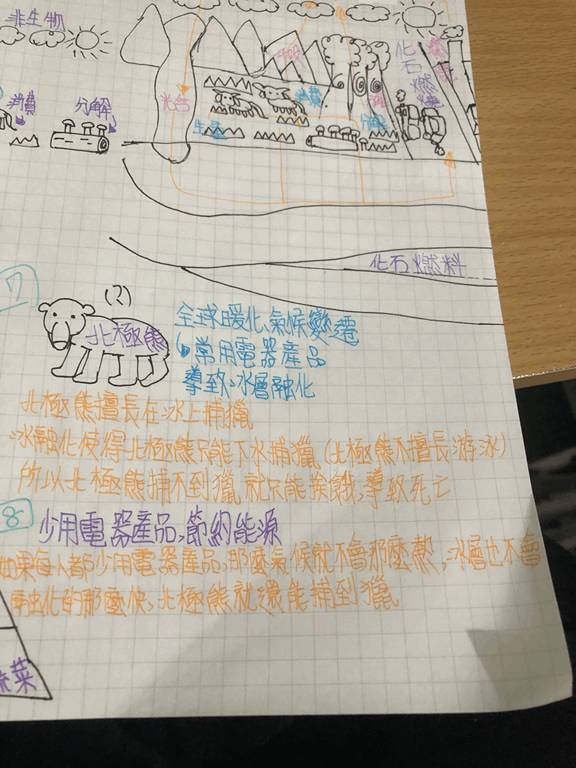 非生物
消費
分解
光合
生產
消費
分解
化石燃燒
化石燃料
7
(2)
北極熊
全球暖化,氣候變遷
常用電器產品
導致冰層融化
北極熊擅長在冰上捕獵
冰融化使得北極熊只能下水捕獵(北極熊不擅長游泳)
所以北極熊捕不到獵,就只能挨餓,導致死亡
8
少用電器產品,節約能源
如果每人都少用電器產品,那麼氣候就不會那麼熱,冰層也不會
融化的那麼快,北極熊就還能捕到獵
菜